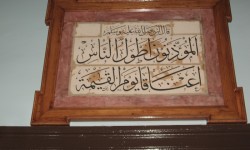 قال النبي صلى الله عليه وسلم
المؤذنون أطول الناس
أعناقا يوم القيمة